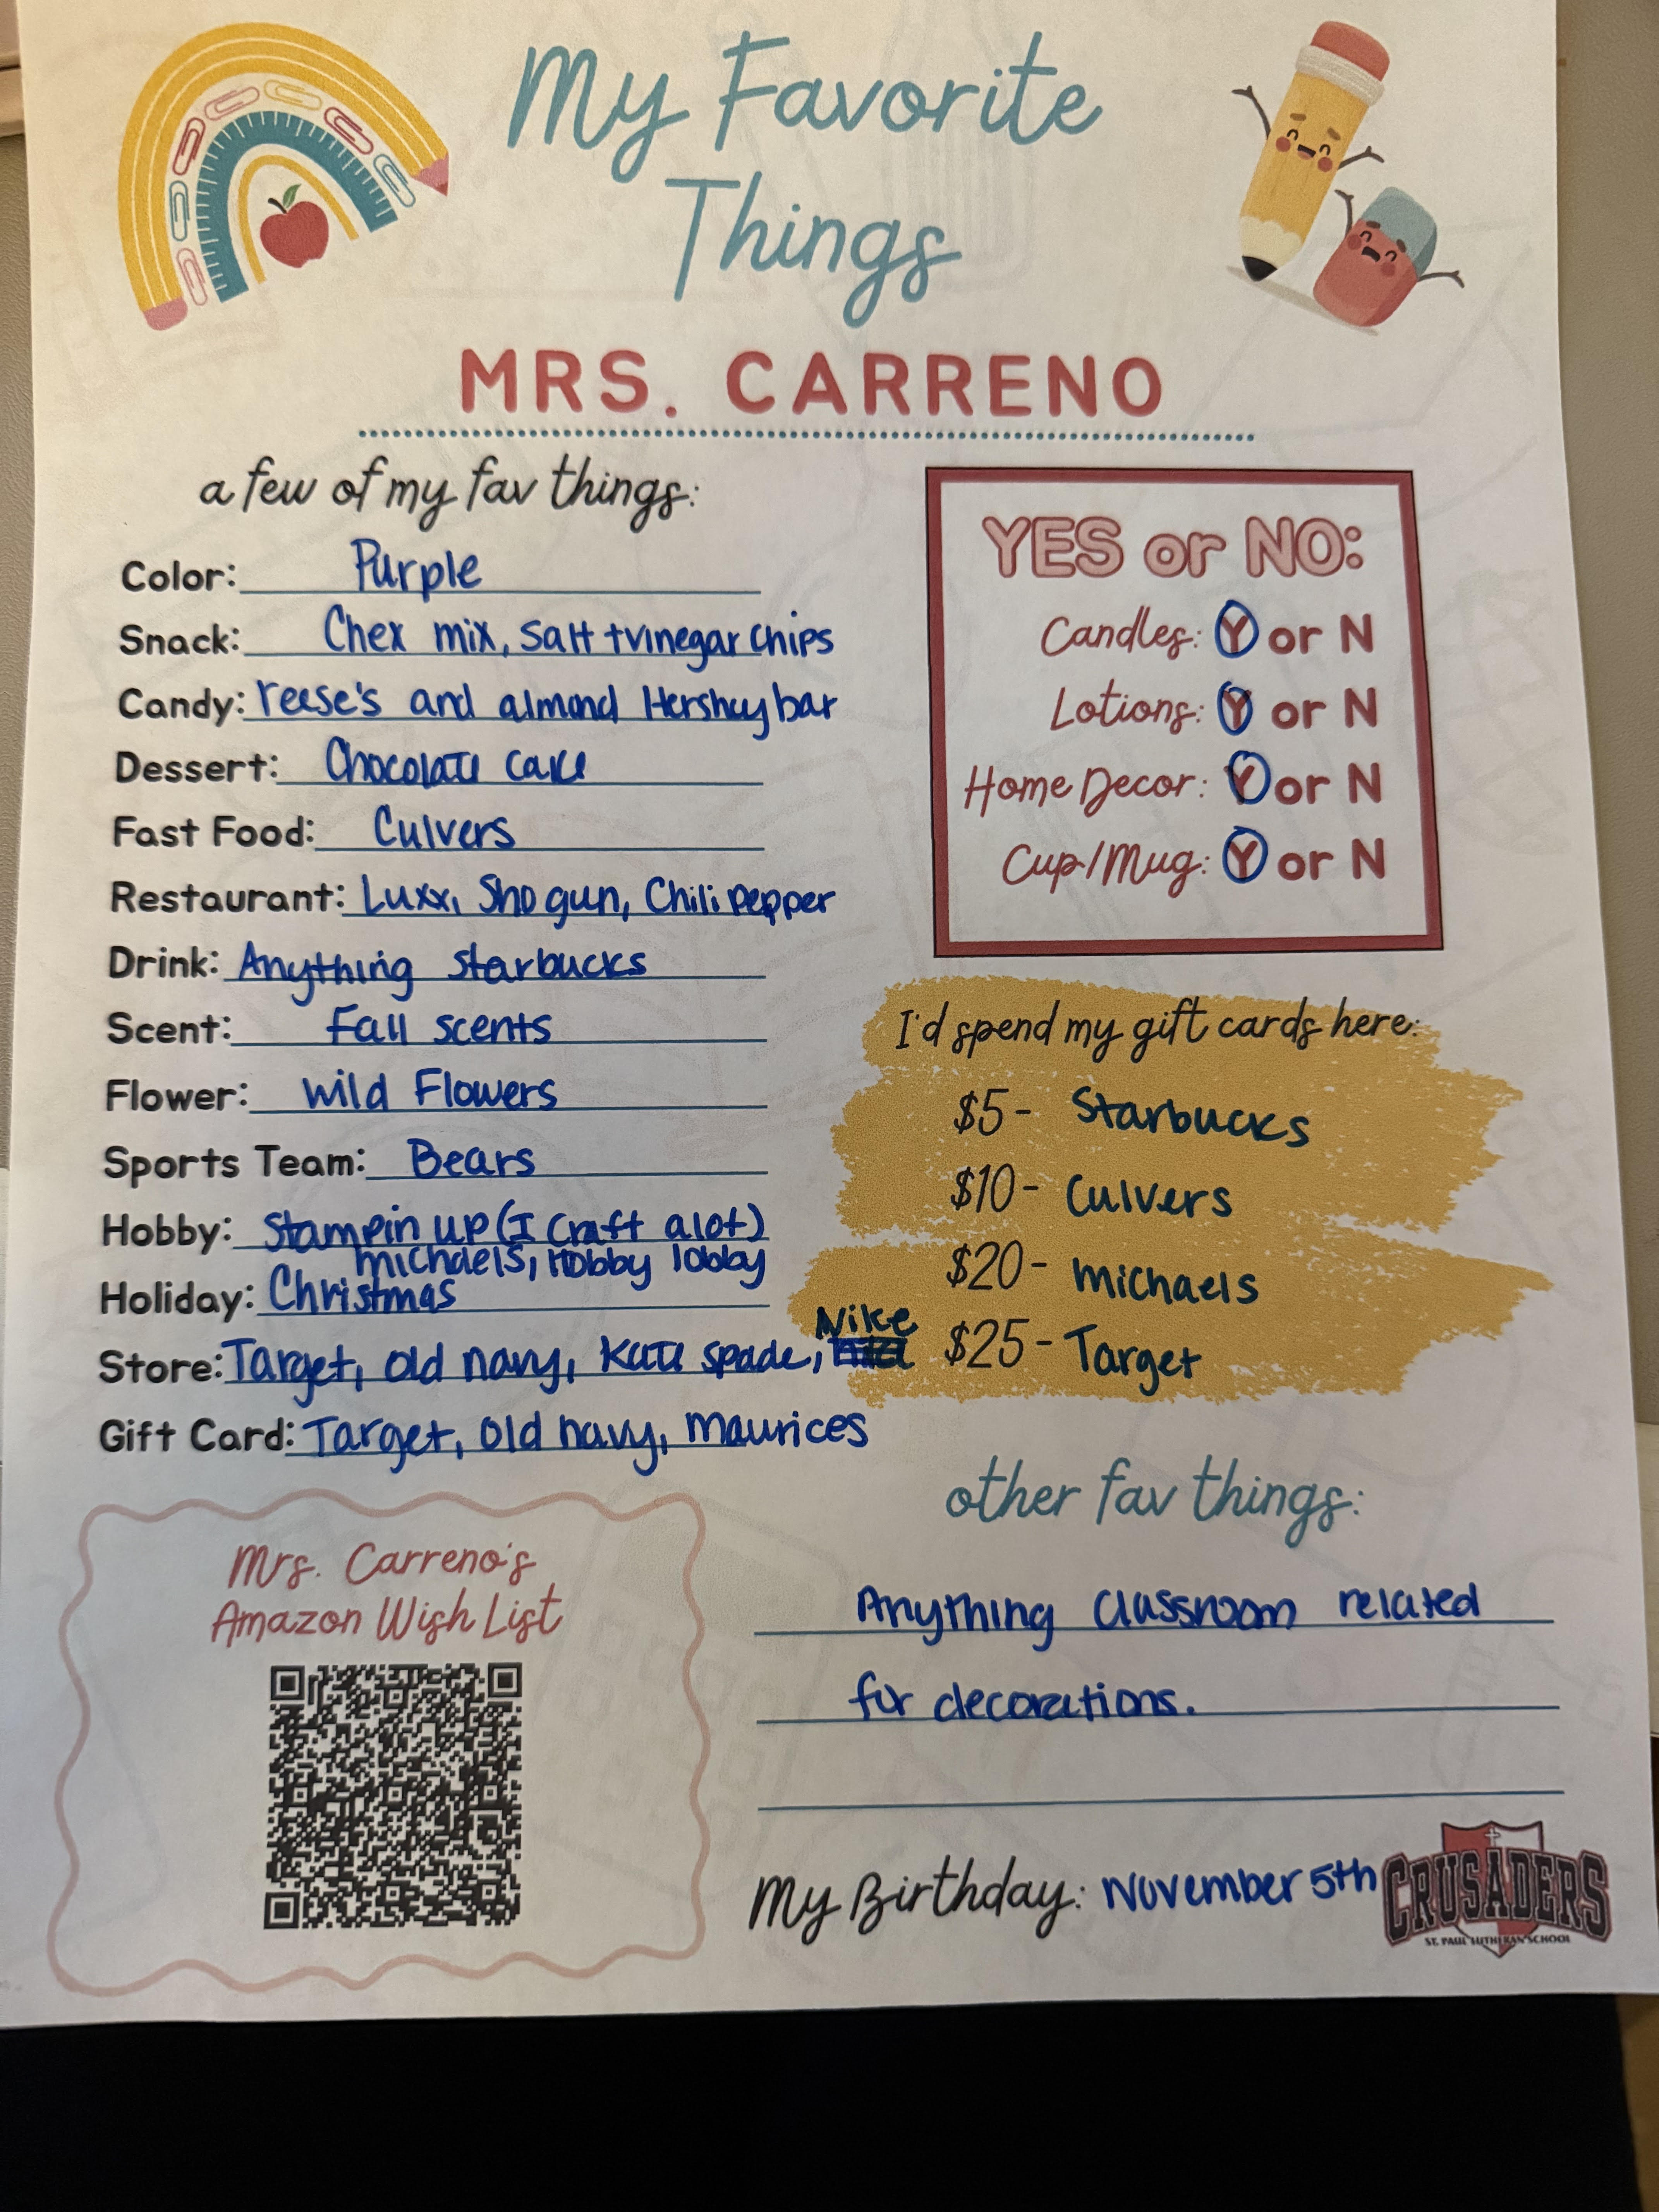 My Favorite
Things
MRS. CARRENO
a few of my fav things:
Color: Purple
Snack: Chex mix, Salt + vinegar chips
Candy: reese's and almond Hershey bar
Dessert: Chocolate cake
Fast Food: Culvers
Restaurant: Luxx, Shogun, Chili pepper
Drink: Anything Starbucks
Scent: Fall scents
Flower: wild Flowers
Sports Team: Bears
Hobby: Stampin up (I craft alot)
michaels, Hobby lobby
Holiday: Christmas
Store: Target, old navy, Kate spade, Nike
Gift Card: Target, old navy, maurices
YES or NO:
Candles: Y or N
Lotions: Y or N
Home Decor: Y or N
Cup/Mug: Y or N
I'd spend my gift cards here:
$5- Starbucks
$10- Culvers
$20- michaels
$25- Target
other fav things:
Anything classroom related
for decorations.
Mrs. Carreno's
Amazon Wish List
My Birthday: November 5th
CRUSADERS
ST. PAUL LUTHERAN SCHOOL